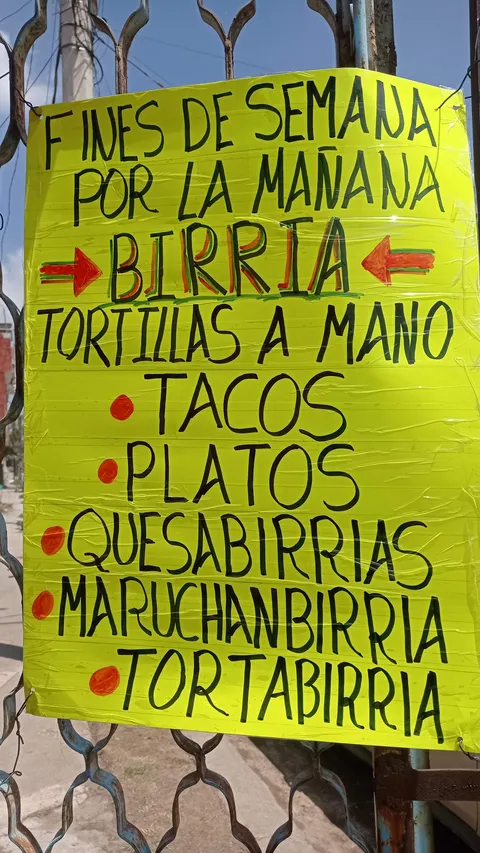 FINES DE SEMANA
POR LA MAÑANA
BIRRIA
TORTILLAS A MANO
TACOS
PLATOS
QUESABIRRIAS
MARUCHANBIRRIA
TORTABIRRIA